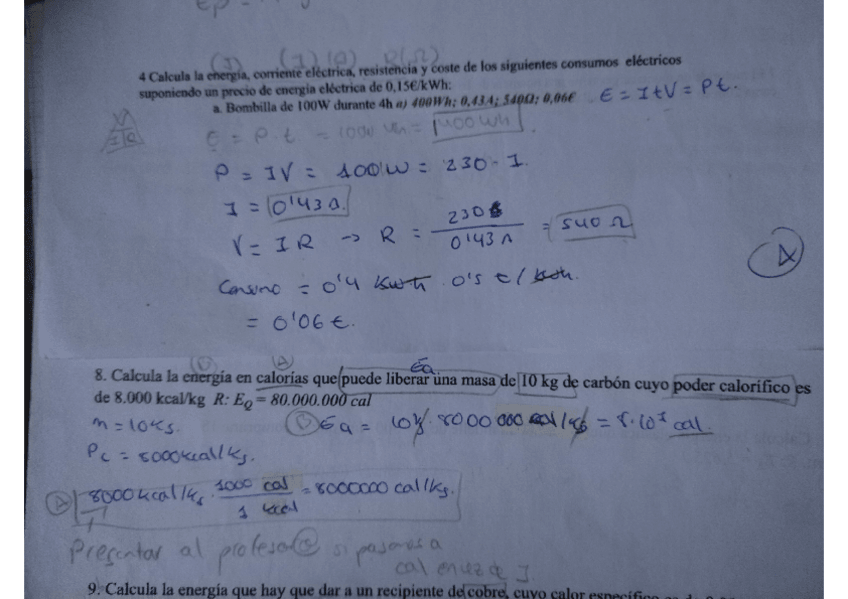 Ep
(J) (I) (A) R(Ω)
4 Calcula la energía, corriente eléctrica, resistencia y coste de los siguientes consumos eléctricos
suponiendo un precio de energía eléctrica de 0,15€/kWh:
a. Bombilla de 100W durante 4h a) 400Wh; 0,43A; 540Ω; 0,06€ E = I t V = P t.
E = P. t =
P = IV = 100W = 230 · I.
I = 0'43 A.
V = I R → R = 230 / 0'43 A = 540 Ω
Consumo = 0'4 kwh · 0'5 € / kwh.
= 0'06 €.
A
(D) (A) Ea
8. Calcula la energía en calorías que puede liberar una masa de 10 kg de carbón cuyo poder calorífico es
de 8.000 kcal/kg R: E_Q = 80.000.000 cal
m = 10 kg. Ea = 10 kg · 8000 000 cal/kg = 8·10⁷ cal.
Pc = 8000 kcal/kg.
A 8000 kcal/kg · 1000 cal / 1 kcal = 8000000 cal/kg.
Preguntar al profesor@ si pasamos a
cal en vez de J
9. Calcula la energía que hay que dar a un recipiente de cobre, cuyo calor específico